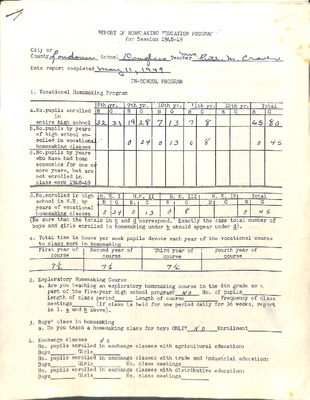 REPORT OF HOMEMAKING EDUCATION PROGRAM
for Session 1948-49
City or
County Loudoun School Douglass Teacher Mrs. Ruth M.
Date report completed May 11, 1949
IN-SCHOOL PROGRAM
1. Vocational Homemaking Program
8th yr. 9th yr. 10th yr. 11th yr. 12th yr. Total
B G B G B G B G B G B G
a. No. pupils enrolled
in
entire high school 32 31 19 28 7 13 7 8 65 80
b. No. pupils by years
of high school en-
rolled in vocational
homemaking classes 0 24 0 13 0 8 0 45
c. No. pupils by years
who have had home
economics for one or
more years, but are
not enrolled in
class work 1948-49
d. No. enrolled in high H. E. I H.E. II H.E. III H.E. IV Total
school in H.E. by B G B G B G B G B G
years of vocational
homemaking classes 0 24 0 13 0 8 0 45
(Be sure that the totals in b and d correspond. Exactly the same total number of
boys and girls enrolled in homemaking under b should appear under d).
e. Total time in hours per week pupils devote each year of the vocational course
to class work in homemaking
First year of course Second year of course Third year of course Fourth year of course
7½ 7½ 7½
2. Exploratory Homemaking Course
a. Are you teaching an exploratory homemaking course in the 8th grade as a
part of the five-year high school program? NO No. of pupils
Length of class period Length of course Frequency of class
meetings (If class is held for one period daily for 36 weeks, report
in 1. a and b above).
3. Boys' class in homemaking
a. Do you teach a homemaking class for boys ONLY? NO Enrollment
4. Exchange classes NO
No. pupils enrolled in exchange classes with agricultural education:
Boys Girls
No. pupils enrolled in exchange classes with trade and industrial education:
Boys Girls No. class meetings
No. pupils enrolled in exchange classes with distributive education:
Boys Girls No. class meetings